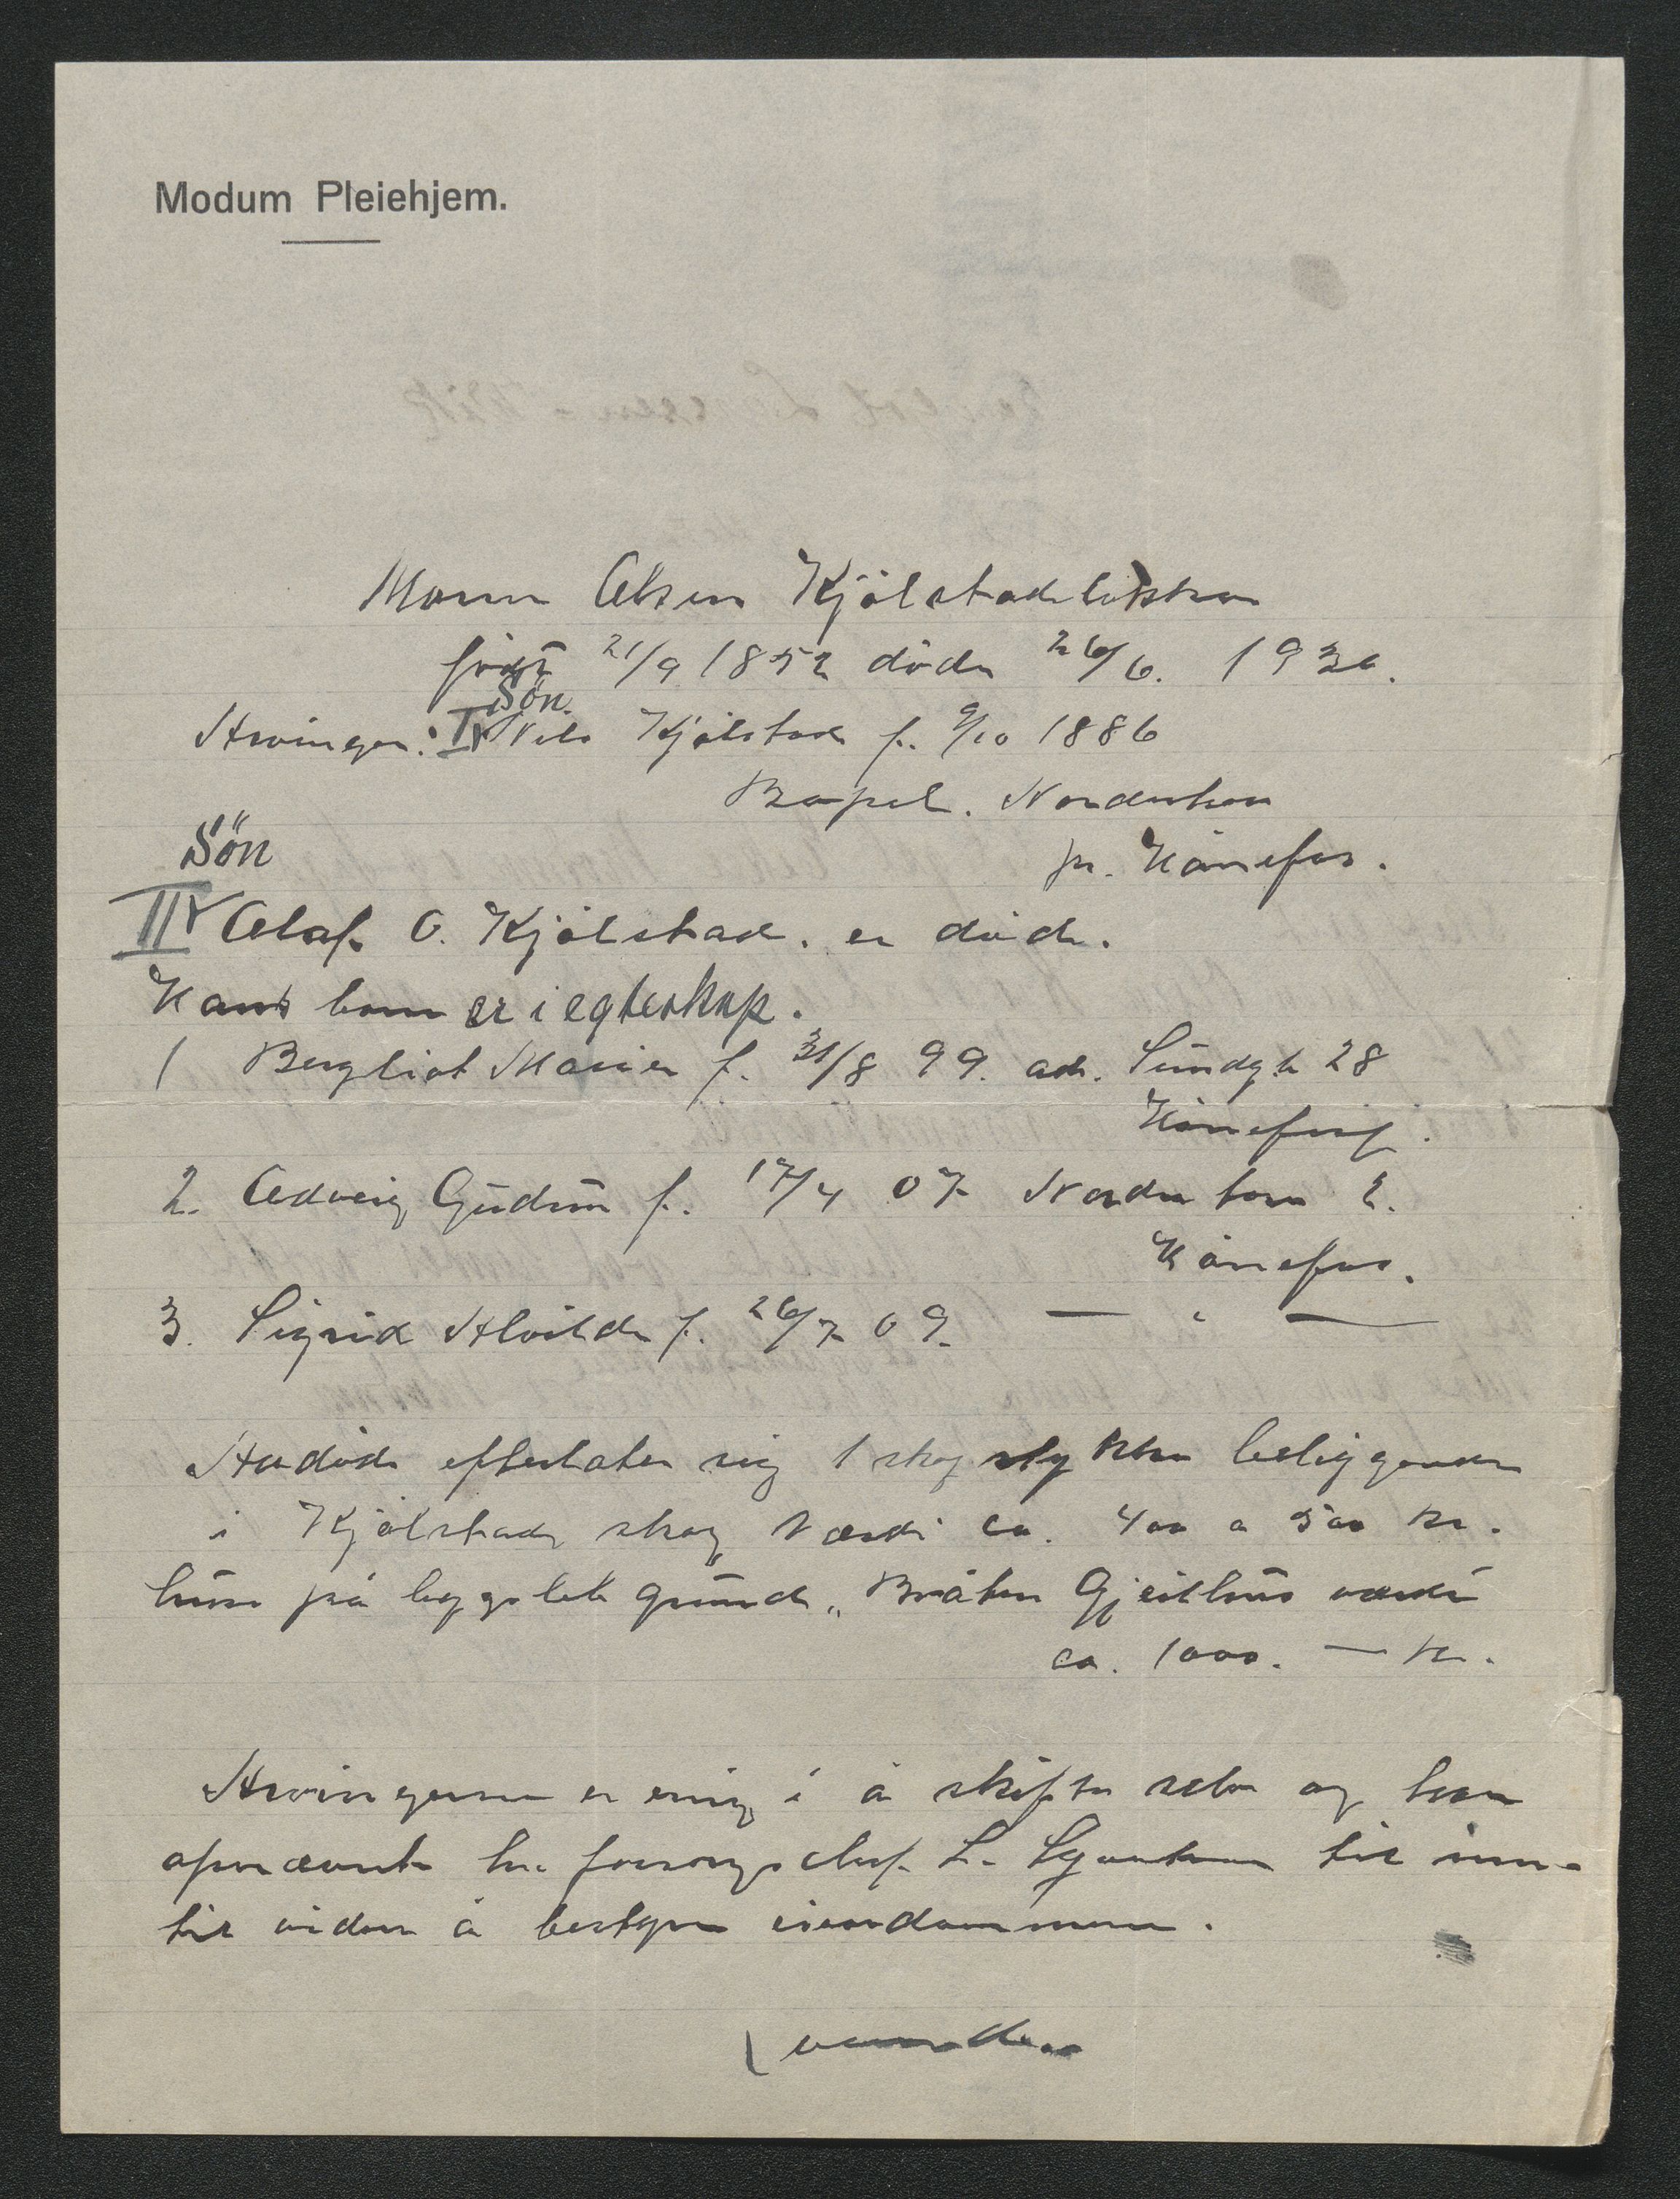 Modum Pleiehjem.
Maren Olsen Kjölstadbakken
født 21/9 1852 döde 26/6. 1930.
Sön.
Arvinger: I Nils Kjölstad f. 9/10 1886
Norderhov
pr. Hönefos.
Sön
II Olaf O. Kjölstad. er död.
Hans barn er i egteskap.
1 Bergliot Marie f. 31/8 99. adr. Sundgt 28
Hönefoss.
2. Odveig Gudrun f. 17/4 07 Norderhov
Hönefos.
3. Sigrid Alvilde f. 26/7 09. — " —
Avdöde efterlater sig 1 skogstykke beliggende
i Kjölstad skog værdi ca. 400 a 500 kr.
hus på bygslet grund „ Bråten Gjeithus værdi
ca. 1000. — kr.
Arvingerne er enig i å skifte selv og har
opnævnt hr. forsorgschef L. til inn-
til videre å bestyre eiendommene.
( vender